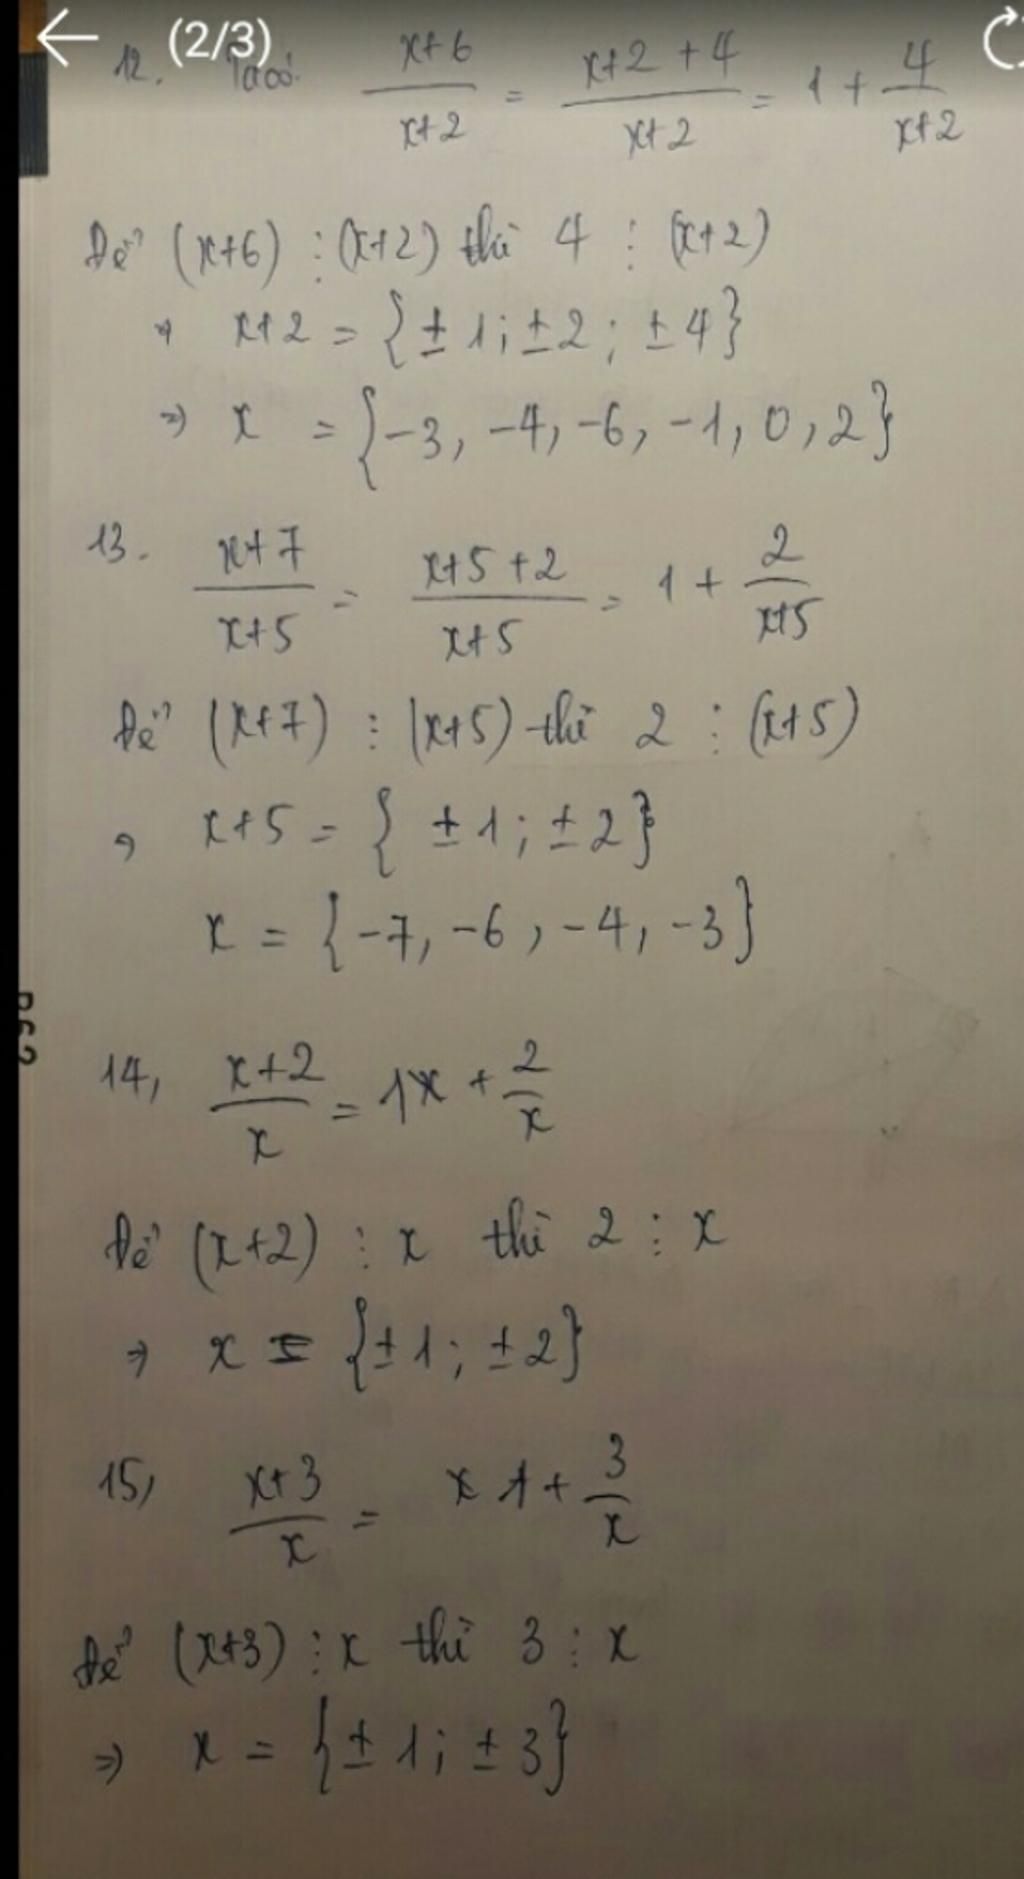 (2/3)
12. Ta có: x+6/x+2 = x+2+4/x+2 = 1 + 4/x+2
Để (x+6) ⋮ (x+2) thì 4 ⋮ (x+2)
⇒ x+2 = {±1; ±2; ±4}
⇒ x = {-3, -4, -6, -1, 0, 2}
13. x+7/x+5 = x+5+2/x+5 = 1 + 2/x+5
Để (x+7) ⋮ (x+5) thì 2 ⋮ (x+5)
⇒ x+5 = {±1; ±2}
x = {-7, -6, -4, -3}
14, x+2/x = 1x + 2/x
Để (x+2) ⋮ x thì 2 ⋮ x
⇒ x = {±1; ±2}
15, x+3/x = x 1 + 3/x
Để (x+3) ⋮ x thì 3 ⋮ x
⇒ x = {±1; ±3}